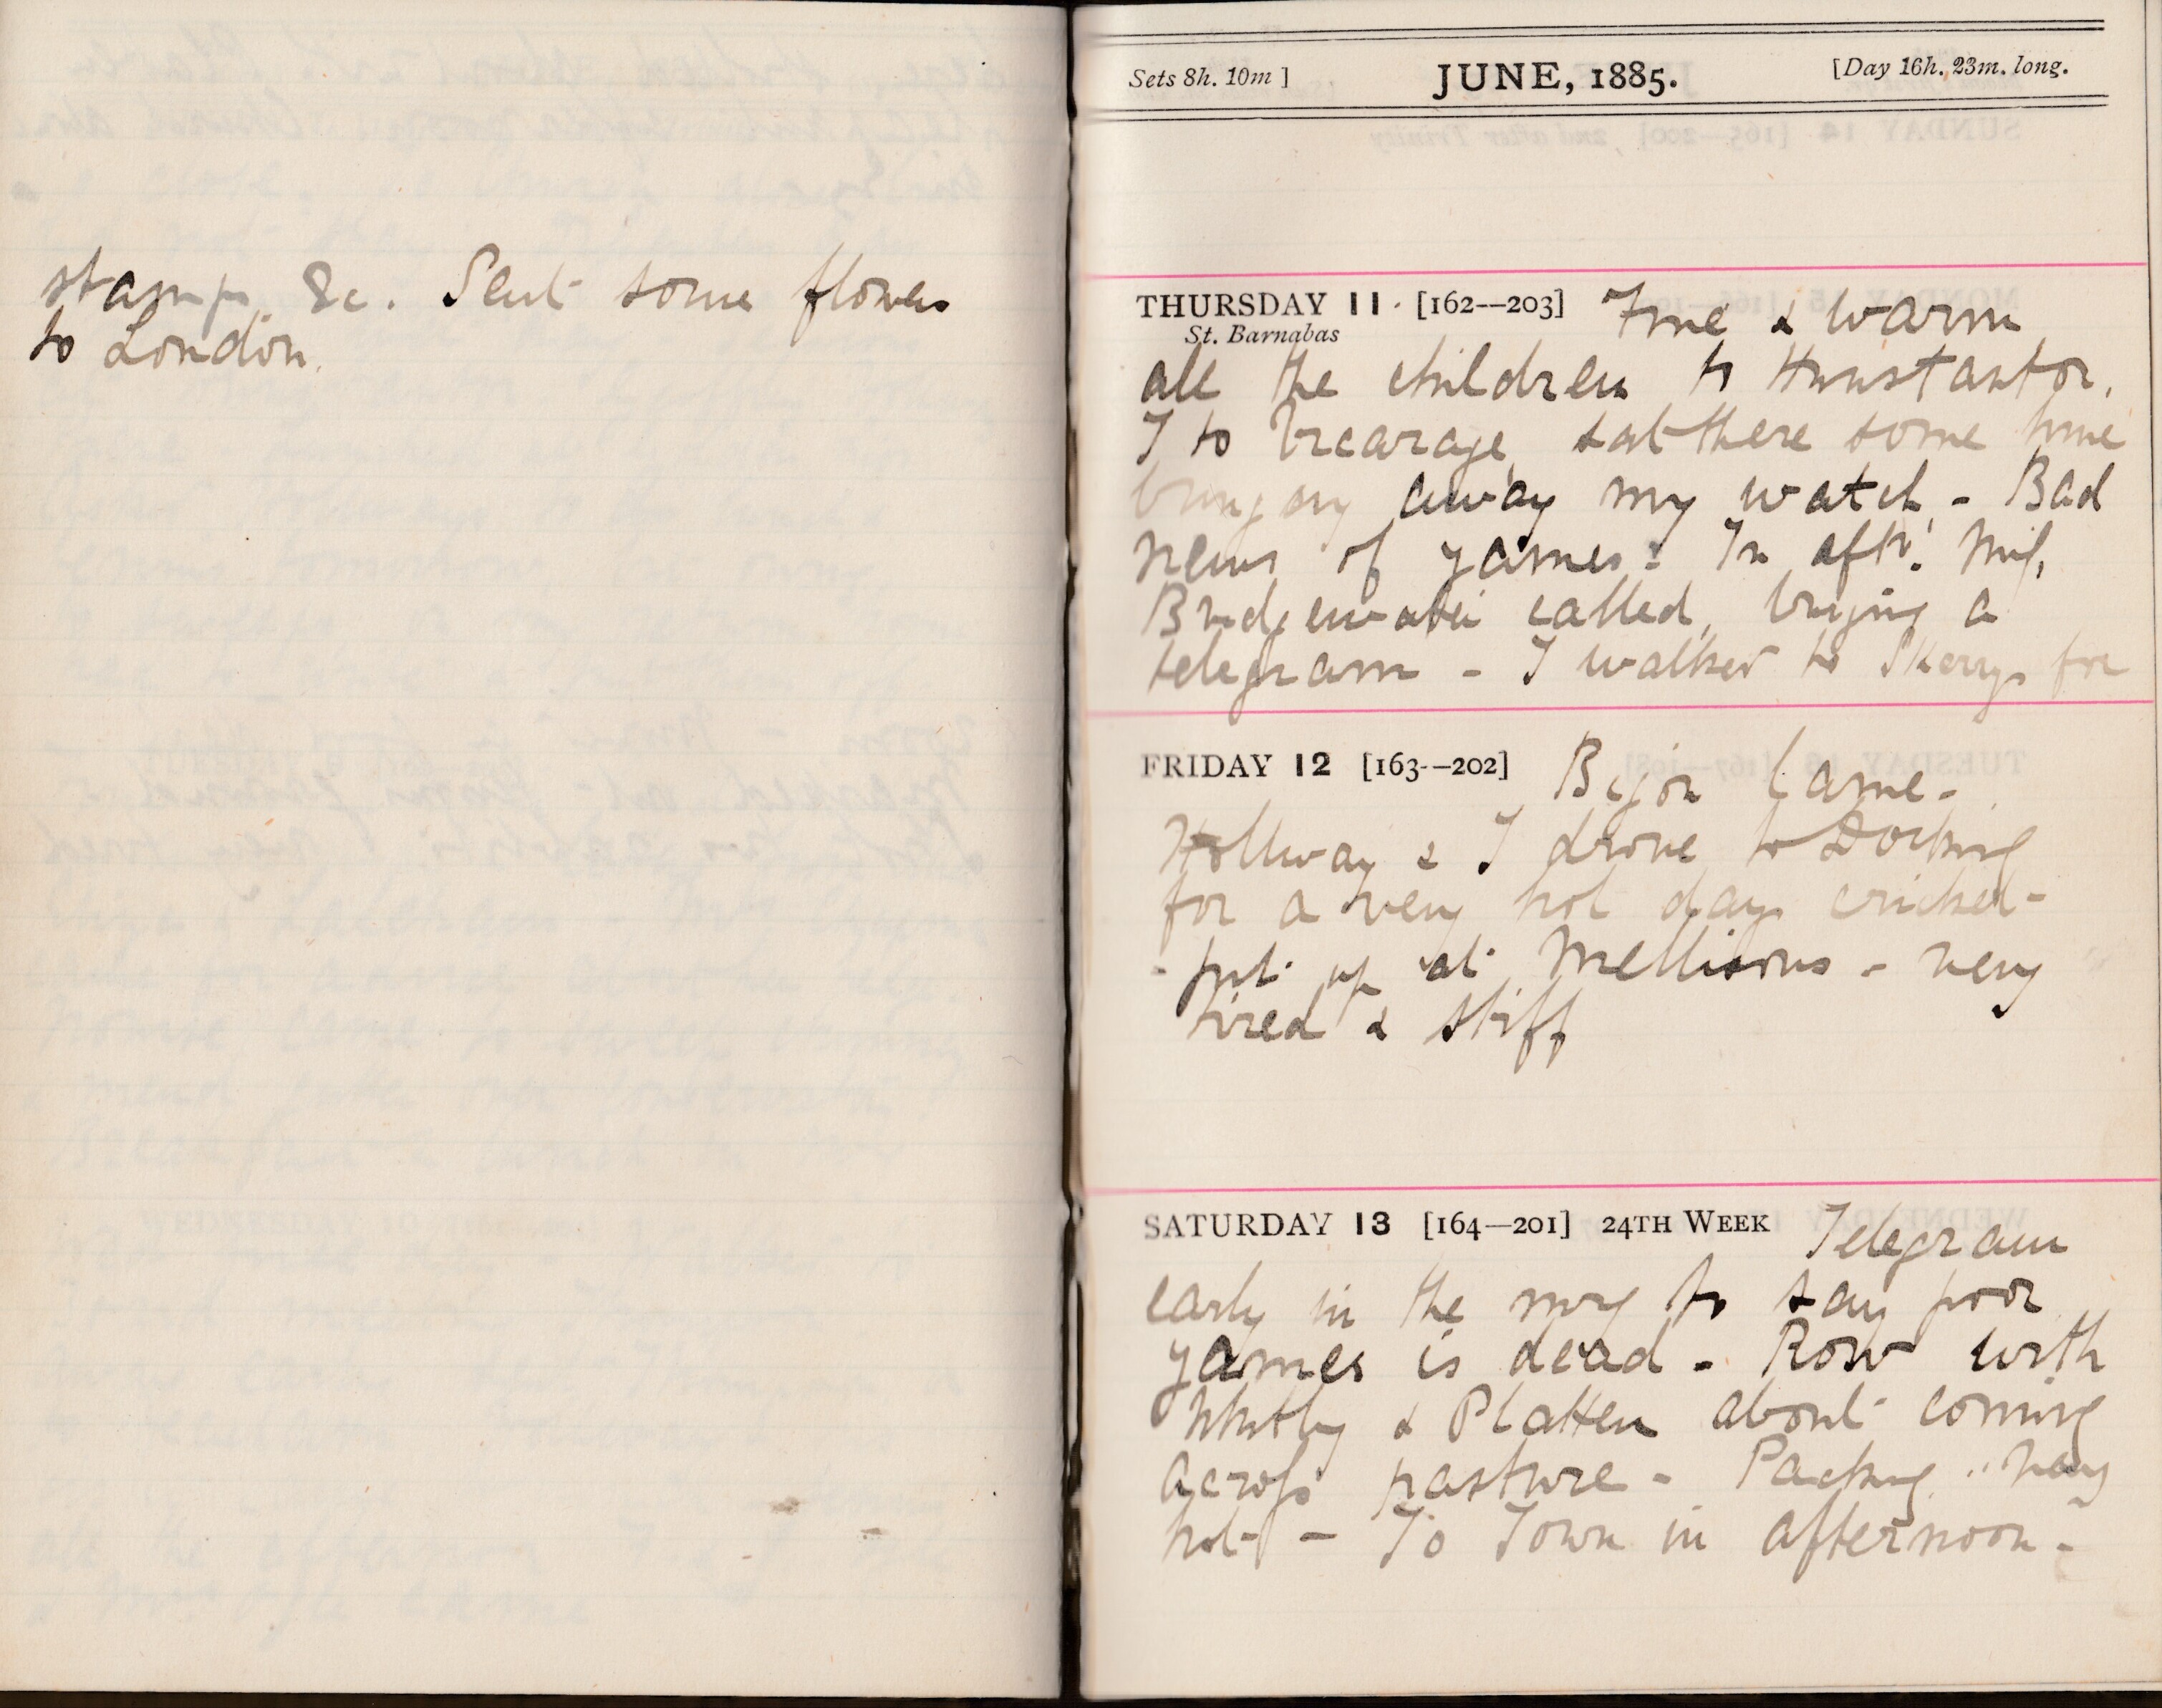 stamps, &c. Sent some flowers
to London.
Sets 8h. 10m ]
JUNE, 1885.
[Day 16h. 23m. long.
THURSDAY 11 [162—203] Fine & warm
St. Barnabas
all the children to Hunstanton.
I to Vicarage, sat there some time
bringing away my watch. - Bad
news of James: In aftr.
Bridgewater called, bringing a
telegram - I walked to Skerrys for
FRIDAY 12 [163—202] Bijou lame -
Hollway & I drove to Docking
for a very hot days cricket -
- put up at Mellisons - very
tired & stiff
SATURDAY 13 [164—201] 24TH WEEK Telegram
early in the mng to say poor
James is dead - Row with
Whitby & Platten about coming
across pasture - Packing. Very
hot - To Town in afternoon -